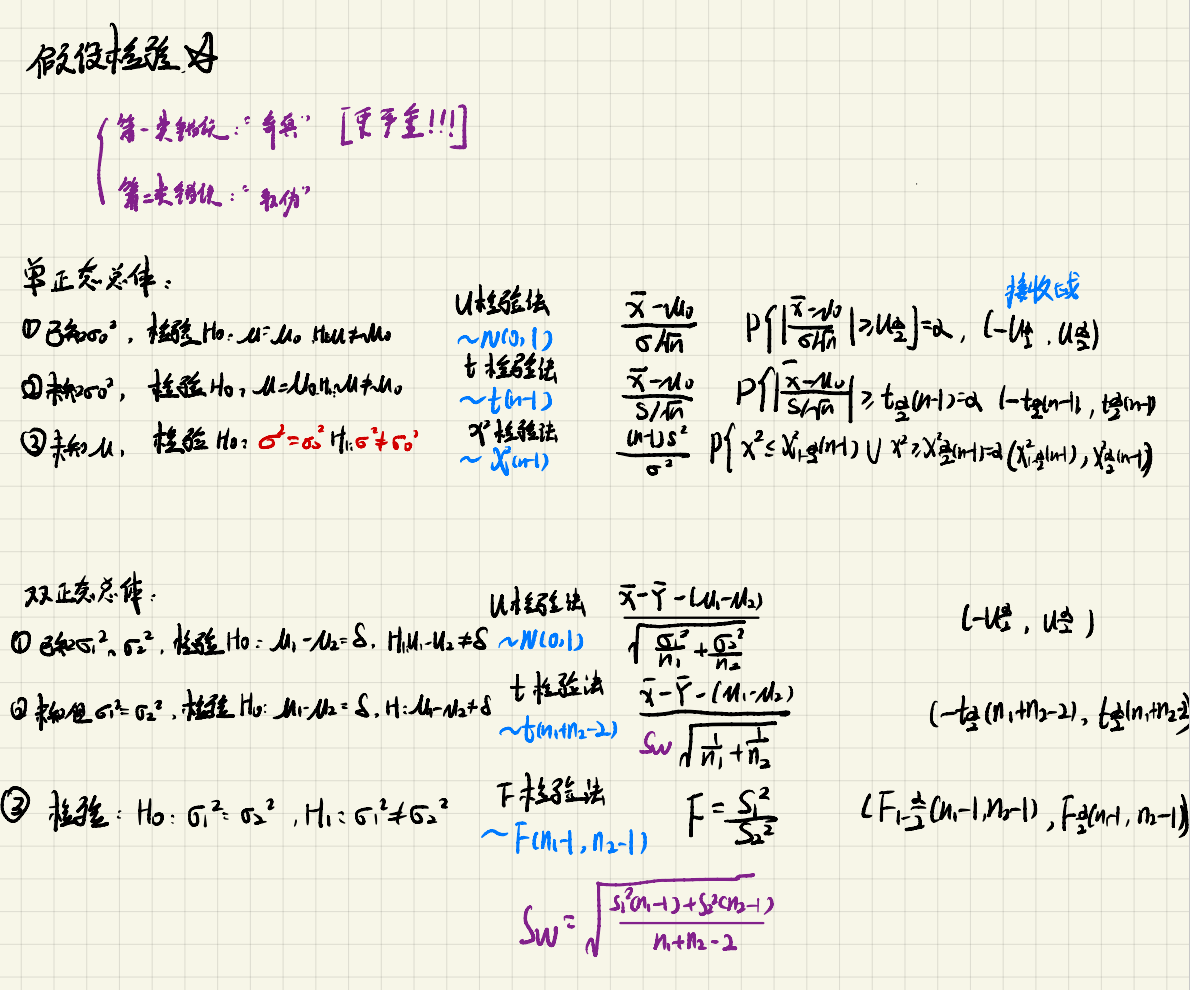 假设检验 ☆
第一类错误：“弃真” [更严重!!!]
第二类错误：“取伪”
单正态总体：
接收域
① 已知σ₀², 检验 H₀: μ=μ₀ H₁: μ≠μ₀ U检验法 ~N(0,1) (X̄-μ₀)/(σ/√n) P{|(X̄-μ₀)/(σ/√n)|≥U_{α/2}}=α, (-U_{α/2}, U_{α/2})
② 未知σ₀², 检验 H₀: μ=μ₀ H₁: μ≠μ₀ t检验法 ~t(n-1) (X̄-μ₀)/(S/√n) P{|(X̄-μ₀)/(S/√n)|≥t_{α/2}(n-1)=α (-t_{α/2}(n-1), t_{α/2}(n-1)
③ 未知μ, 检验 H₀: σ²=σ₀² H₁: σ²≠σ₀² χ²检验法 ~χ²(n-1) (n-1)S²/σ² P{χ²≤χ²_{1-α/2}(n-1) ∪ χ²≥χ²_{α/2}(n-1)=α (χ²_{1-α/2}(n-1), χ²_{α/2}(n-1))
双正态总体：
① 已知σ₁²、σ₂², 检验 H₀: μ₁-μ₂=δ, H₁: μ₁-μ₂≠δ U检验法 ~N(0,1) (X̄-Ȳ-(μ₁-μ₂))/√(σ₁²/n₁+σ₂²/n₂) (-U_{α/2}, U_{α/2})
② 未知但σ₁²=σ₂², 检验 H₀: μ₁-μ₂=δ, H₁: μ₁-μ₂≠δ t检验法 ~t(n₁+n₂-2) (X̄-Ȳ-(μ₁-μ₂))/(Sw√(1/n₁+1/n₂)) (-t_{α/2}(n₁+n₂-2), t_{α/2}(n₁+n₂-2)
③ 检验: H₀: σ₁²=σ₂², H₁: σ₁²≠σ₂² F检验法 ~F(n₁-1, n₂-1) F=S₁²/S₂² (F_{1-α/2}(n₁-1, n₂-1), F_{α/2}(n₁-1, n₂-1))
Sw=√((S₁²(n₁-1)+S₂²(n₂-1))/(n₁+n₂-2))